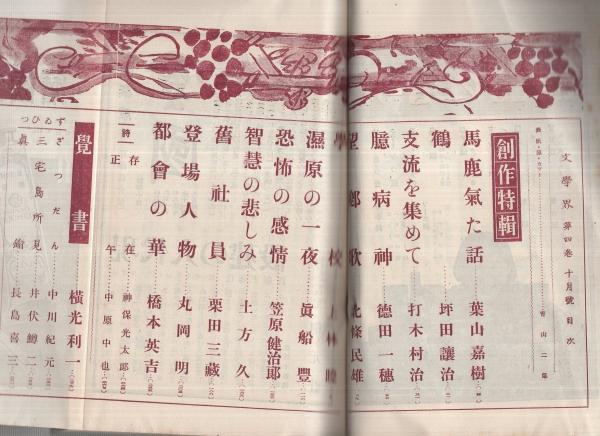 文學界 第四卷 十月號 目次
表紙・扉・カット 青山二郎
創作特輯
馬鹿氣た話 葉山嘉樹
鶴 坪田讓治
支流を集めて 打木村治
臆病神 德田一穗
望鄉歌 北條民雄
學校
濕原の一夜 眞船豐
恐怖の感情 笠原健治郎
智慧の悲しみ 土方久
舊社員 栗田三藏
登場人物 丸岡明
都會の華 橋本英吉
詩
存在 神保光太郎
正午 中原中也
覺書 橫光利一
ずゐひつ
ざつだん 中川紀元
三宅島所見 井伏鱒二
眞鍮 長島喜三